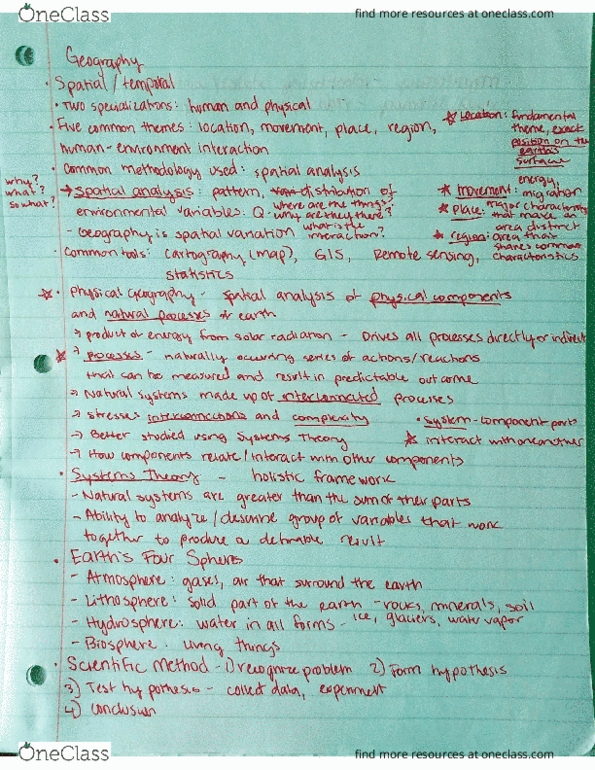 OneClass
find more resources at oneclass.com
Geography
• Spatial / temporal
• Two specializations: human and physical
• Five common themes: location, movement, place, region,
human-environment interaction
★ Location: fundamental
theme, exact
position on the
earth's
surface
• Common methodology used: spatial analysis
why?
what?
so what?
→ spatial analysis: pattern, distribution of
environmental variables: Q: where are the things?
why are they there?
what is the
interaction?
- Geography is spatial variation
energy,
★ movement: migration
★ place: major characteristics
that make an
area distinct
★ region: area that
shares common
characteristics
• Common tools: cartography (map), GIS, Remote sensing,
statistics
★ • Physical Geography - spatial analysis of physical components
and natural processes of earth
→ product of energy from solar radiation - Drives all processes directly or indirect
★ → processes - naturally occuring series of actions/reactions
that can be measured and result in predictable outcome
→ Natural systems made up of interconnected processes
→ stresses interconnections and complexity
• System - component parts
★ interact with one another
→ Better studied using Systems Theory
→ How components relate/interact with other components
• Systems Theory - holistic framework
- Natural systems are greater than the sum of their parts
- Ability to analyze / describe group of variables that work
together to produce a definable result
• Earth's Four Spheres
- Atmosphere: gases, air that surround the earth
- Lithosphere: Solid part of the earth - rocks, minerals, soil
- Hydrosphere: water in all forms - ice, glaciers, water vapor
- Biosphere: living things
• Scientific Method - 1) recognize problem 2) Form hypothesis
3) Test hypothesis - collect data, experiment
4) conclusion
OneClass
find more resources at oneclass.com